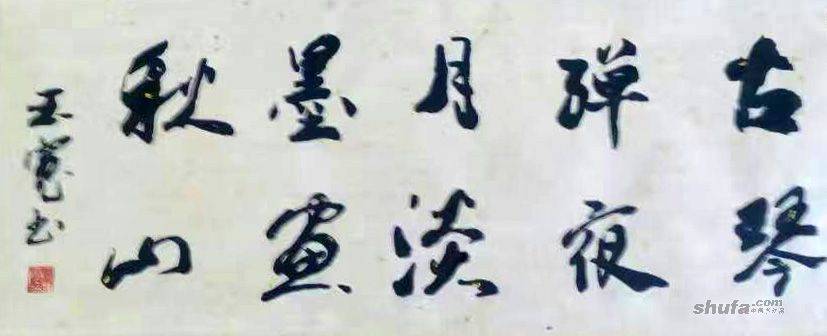 古琴
弹夜
月淡
墨画
秋山
王宽书
shufa.com